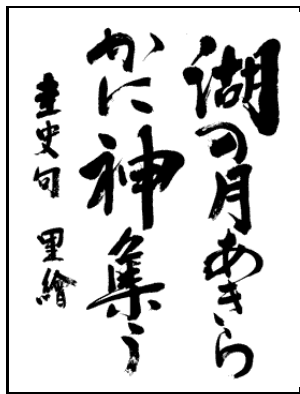 湖の月あきら
かに神集う
圭史句 里繪